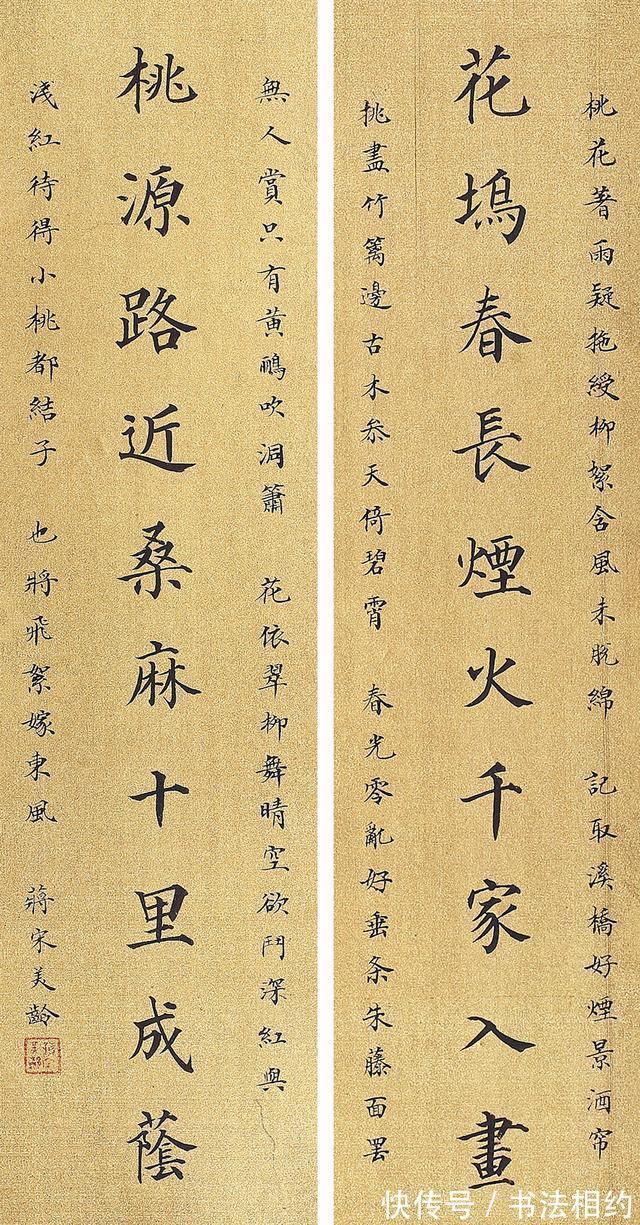 桃花著雨疑拖綬柳絮含風未脫綿 記取溪橋好煙景酒帘
花塢春長煙火千家入畫
挑盡竹籬邊古木參天倚碧霄 春光零亂好垂条朱藤面罢
無人賞只有黃鸝吹洞簫 花依翠柳舞晴空欲鬥深紅與
桃源路近桑麻十里成蔭
淺紅待得小桃都結子 也將飛絮嫁東風 蔣宋美齡
快传号 / 书法相约